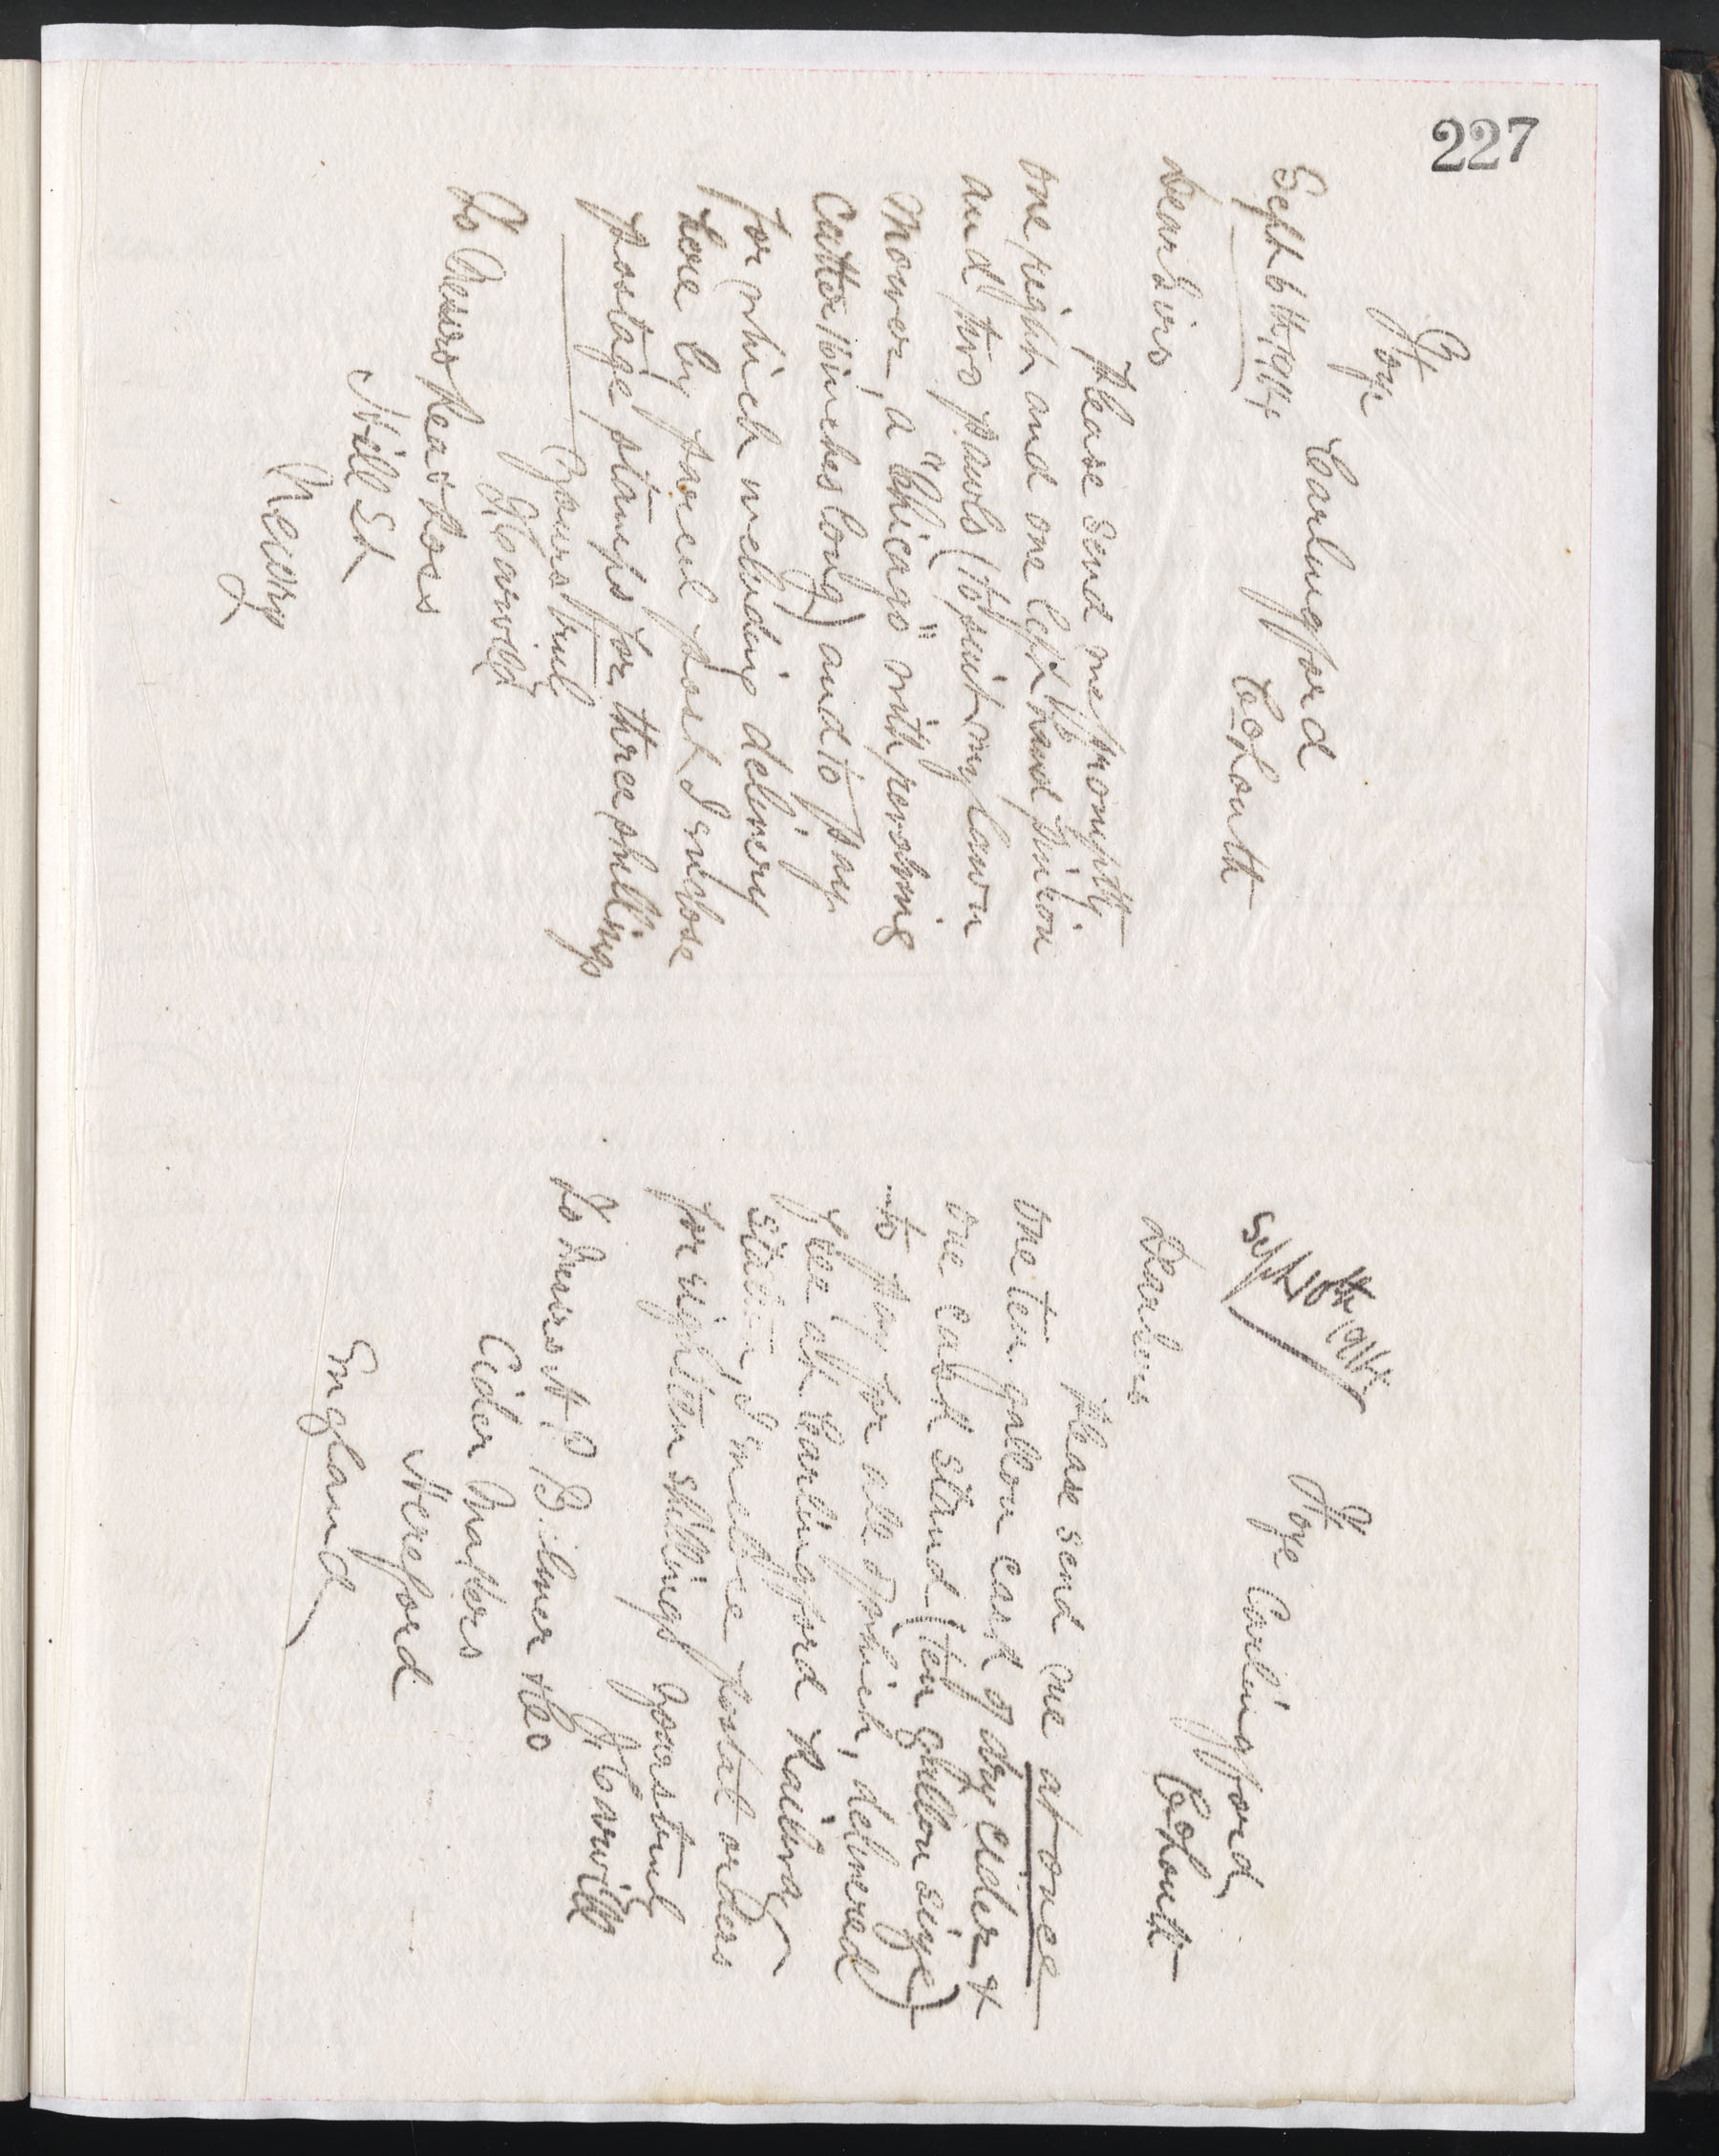 227
Hoye
Carlingford
Sept 6th 1914 Co Louth
Dear Sirs
Please send me promptly
one right and one left hand pinion
and two pawls (to suit my lawn
mower, a "Chicago" with revolving
Cutter 16 inches long) and to pay
for which including delivery
here by parcel post I enclose
postage stamps for three shillings
Yours truly
To Messrs
Hill St
Newry
Sept 10th 1914
Hoye Carlingford
Co Louth
Dear Sirs
Please send me at once
one ten gallon cask of dry cider &
one cask stand (ten gallon size)
to pay for all of which, delivered
free at Carlingford Railway
station, I inclose postal orders
for eighteen shillings Yours truly
To Messrs H P Bulmer & Co
Cider Makers
Hereford
England